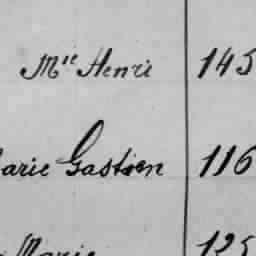 Mlle Henri 145
arie Gastien 116
Marie 125